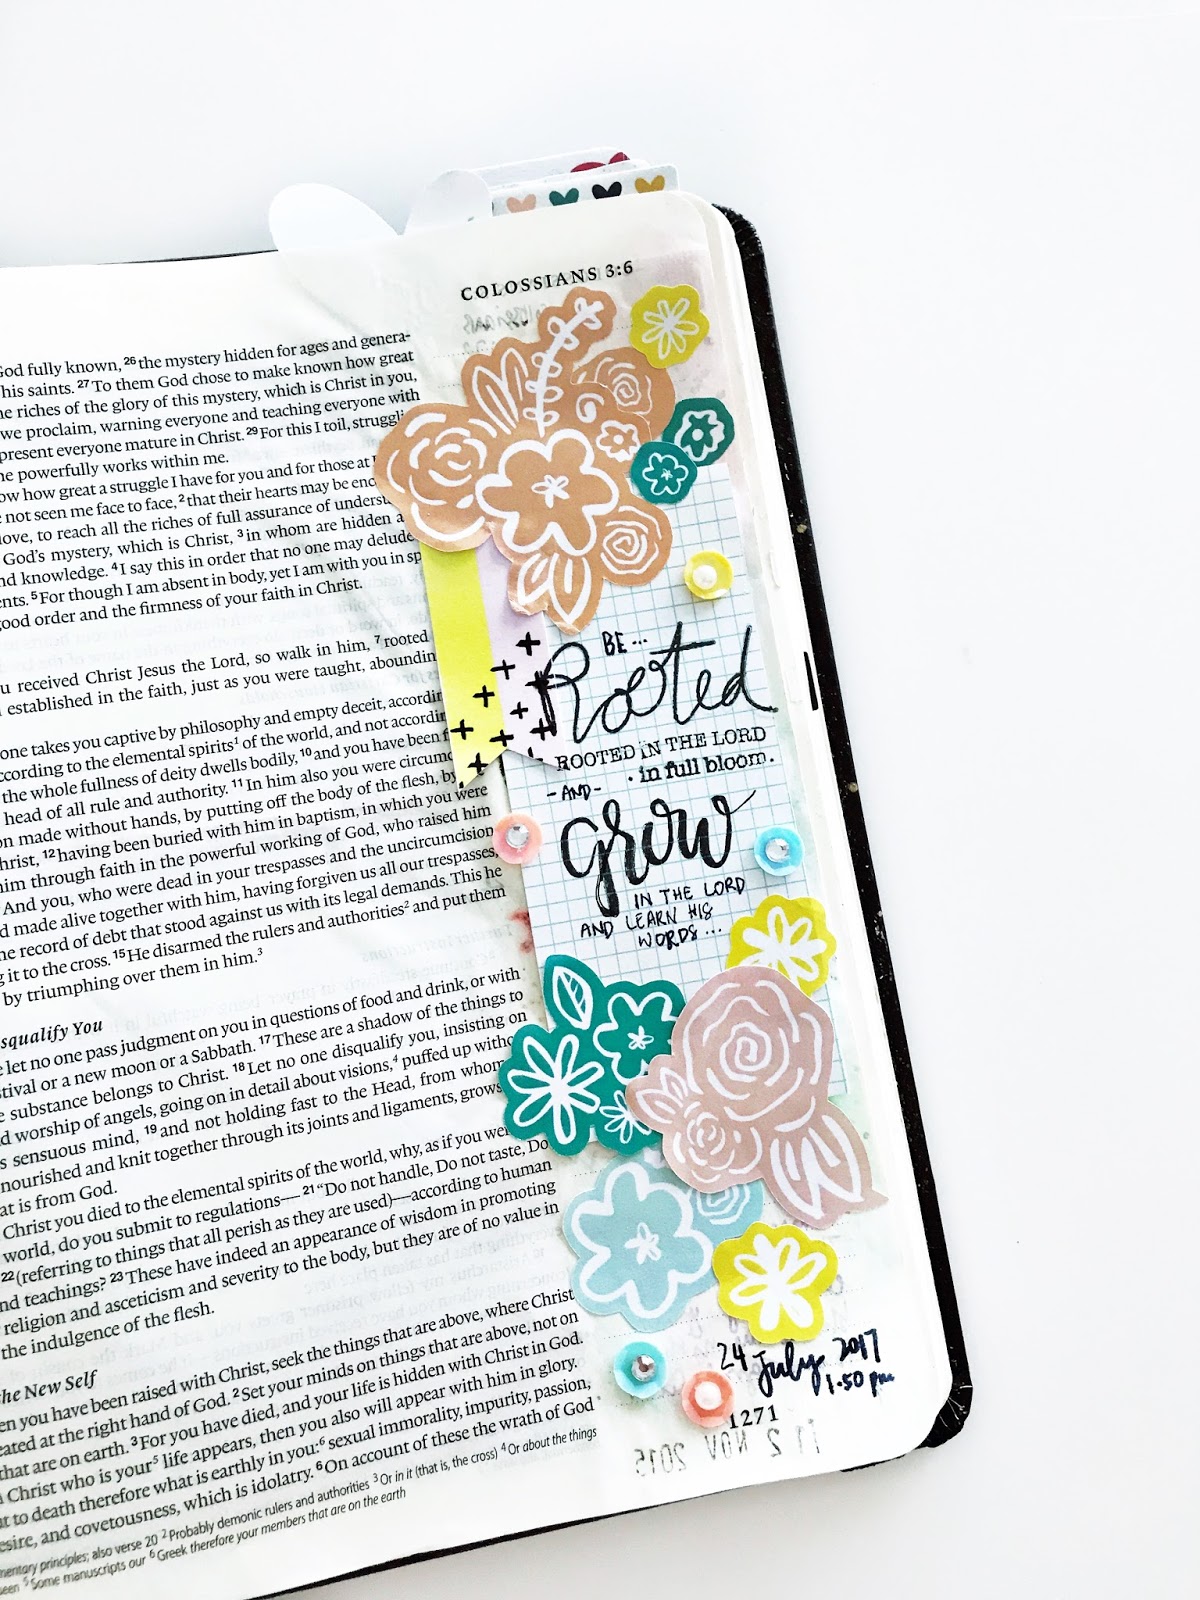 COLOSSIANS 3:6
God fully known, 26 the mystery hidden for ages and genera-
his saints. 27 To them God chose to make known how great
he riches of the glory of this mystery, which is Christ in you,
we proclaim, warning everyone and teaching everyone with
present everyone mature in Christ. 29 For this I toil, struggli
he powerfully works within me.
ow how great a struggle I have for you and for those at
not seen me face to face, 2 that their hearts may be enco
love, to reach all the riches of full assurance of underst
God's mystery, which is Christ, 3 in whom are hidden a
nd knowledge. 4 I say this in order that no one may delude
ents. 5 For though I am absent in body, yet I am with you in sp
good order and the firmness of your faith in Christ.
u received Christ Jesus the Lord, so walk in him, 7 rooted
established in the faith, just as you were taught, aboundin
one takes you captive by philosophy and empty deceit, accordi
ccording to the elemental spirits1 of the world, and not accordi
the whole fullness of deity dwells bodily, 10 and you have been f
head of all rule and authority. 11 In him also you were circumc
on made without hands, by putting off the body of the flesh, by
hrist, 12 having been buried with him in baptism, in which you were
him through faith in the powerful working of God, who raised him
And you, who were dead in your trespasses and the uncircumcision
d made alive together with him, having forgiven us all our trespasses,
he record of debt that stood against us with its legal demands. This he
g it to the cross. 15 He disarmed the rulers and authorities2 and put them
by triumphing over them in him.3
squalify You
e let no one pass judgment on you in questions of food and drink, or with
stival or a new moon or a Sabbath. 17 These are a shadow of the things to
e substance belongs to Christ. 18 Let no one disqualify you, insisting on
d worship of angels, going on in detail about visions,4 puffed up witho
s sensuous mind, 19 and not holding fast to the Head, from whom
nourished and knit together through its joints and ligaments, grows
at is from God.
Christ you died to the elemental spirits of the world, why, as if you wer
world, do you submit to regulations— 21 “Do not handle, Do not taste, Do
22 (referring to things that all perish as they are used)—according to human
nd teachings? 23 These have indeed an appearance of wisdom in promoting
religion and asceticism and severity to the body, but they are of no value in
the indulgence of the flesh.
he New Self
en you have been raised with Christ, seek the things that are above, where Christ
eated at the right hand of God. 2 Set your minds on things that are above, not on
that are on earth. 3 For you have died, and your life is hidden with Christ in God.
Christ who is your5 life appears, then you also will appear with him in glory.
ut to death therefore what is earthly in you:6 sexual immorality, impurity, passion,
esire, and covetousness, which is idolatry. 6 On account of these the wrath of God
mentary principles; also verse 20 2 Probably demonic rulers and authorities 3 Or in it (that is, the cross) 4 Or about the things
seen 5 Some manuscripts our 6 Greek therefore your members that are on the earth
BE...
Rooted
ROOTED IN THE LORD
· in full bloom.
-AND-
grow
IN THE LORD
AND LEARN HIS
WORDS...
24 July 2017
1.50 pm
1271
2 NOV 2015